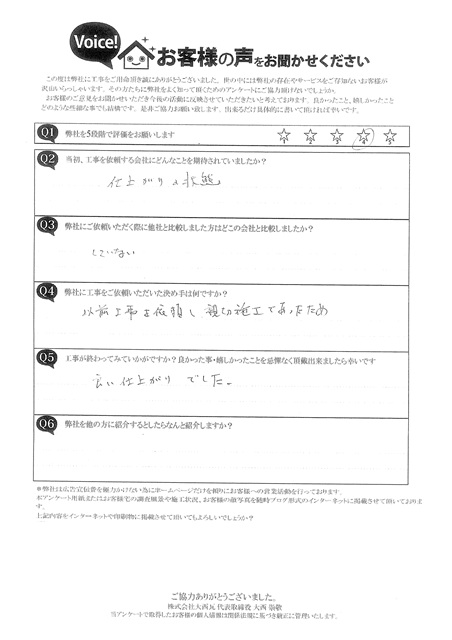 Voice!
お客様の声をお聞かせください
この度は弊社に工事をご用命頂き誠にありがとうございました。世の中には弊社の存在やサービスをご存知ないお客様が
沢山いらっしゃいます。その方たちに弊社をよく知って頂くためのアンケートにご協力頂けないでしょうか。
お客様のご意見をお聞かせいただき今後の活動に反映させていただきたいと考えております。良かったこと、嬉しかったこと
どのような些細な事でも結構です。是非ご協力お願い致します。出来るだけ具体的に書いて頂ければ幸いです。
Q1 弊社を5段階で評価をお願いします
Q2 当初、工事を依頼する会社にどんなことを期待されていましたか?
仕上がりの状態
Q3 弊社にご依頼いただく際に他社と比較しました方はどこの会社と比較しましたか?
していない
Q4 弊社に工事をご依頼いただいた決め手は何ですか?
以前工事を依頼し親切施工であったため
Q5 工事が終わってみていかがですか?良かった事・嬉しかったことを忌憚なく頂戴出来ましたら幸いです
良い仕上がりでした。
Q6 弊社を他の方に紹介するとしたらなんと紹介しますか?
※弊社は広告宣伝費を極力かけない為にホームページだけを頼りにお客様への営業活動を行っております。
本アンケート用紙またはお客様宅の調査風景や施工状況、お客様の顔写真を随時ブログ形式のインターネットに掲載させて頂いておりま
す。
上記内容をインターネットや印刷物に掲載させて頂いてもよろしいでしょうか?
ご協力ありがとうございました。
株式会社大西瓦 代表取締役 大西
当アンケートで取得したお客様の個人情報は関係法規に基づき適正に管理いたします。